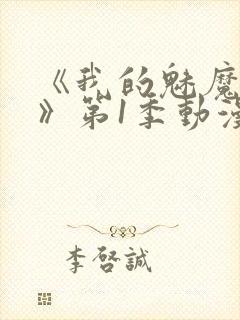 《我的魅魔
》第1季動漫
李啓誠